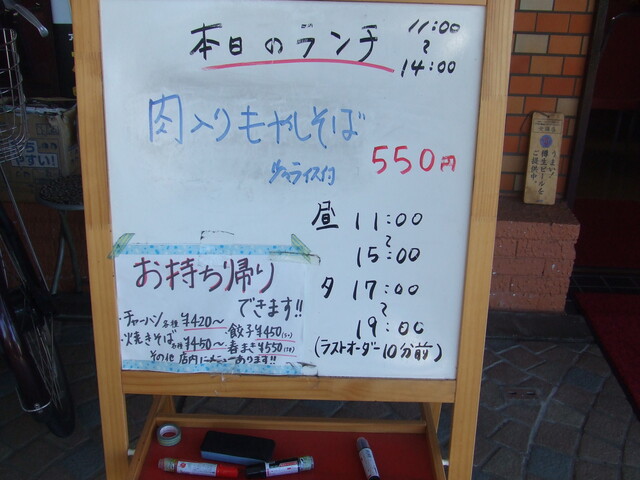 本日のランチ 11:00
〜
14:00
肉入りもやしそば
少々ライス付
550円
昼 11:00
〜
15:00
夕 17:00
〜
19:00
(ラストオーダー10分前)
お持ち帰り
できます!!
・チャーハン各種¥420〜 餃子¥450
・焼きそば各種¥450〜 春まき¥550
その他 店内にメニューあります!!
うまい!
樽生ビールを
ご提供中。
やすい!